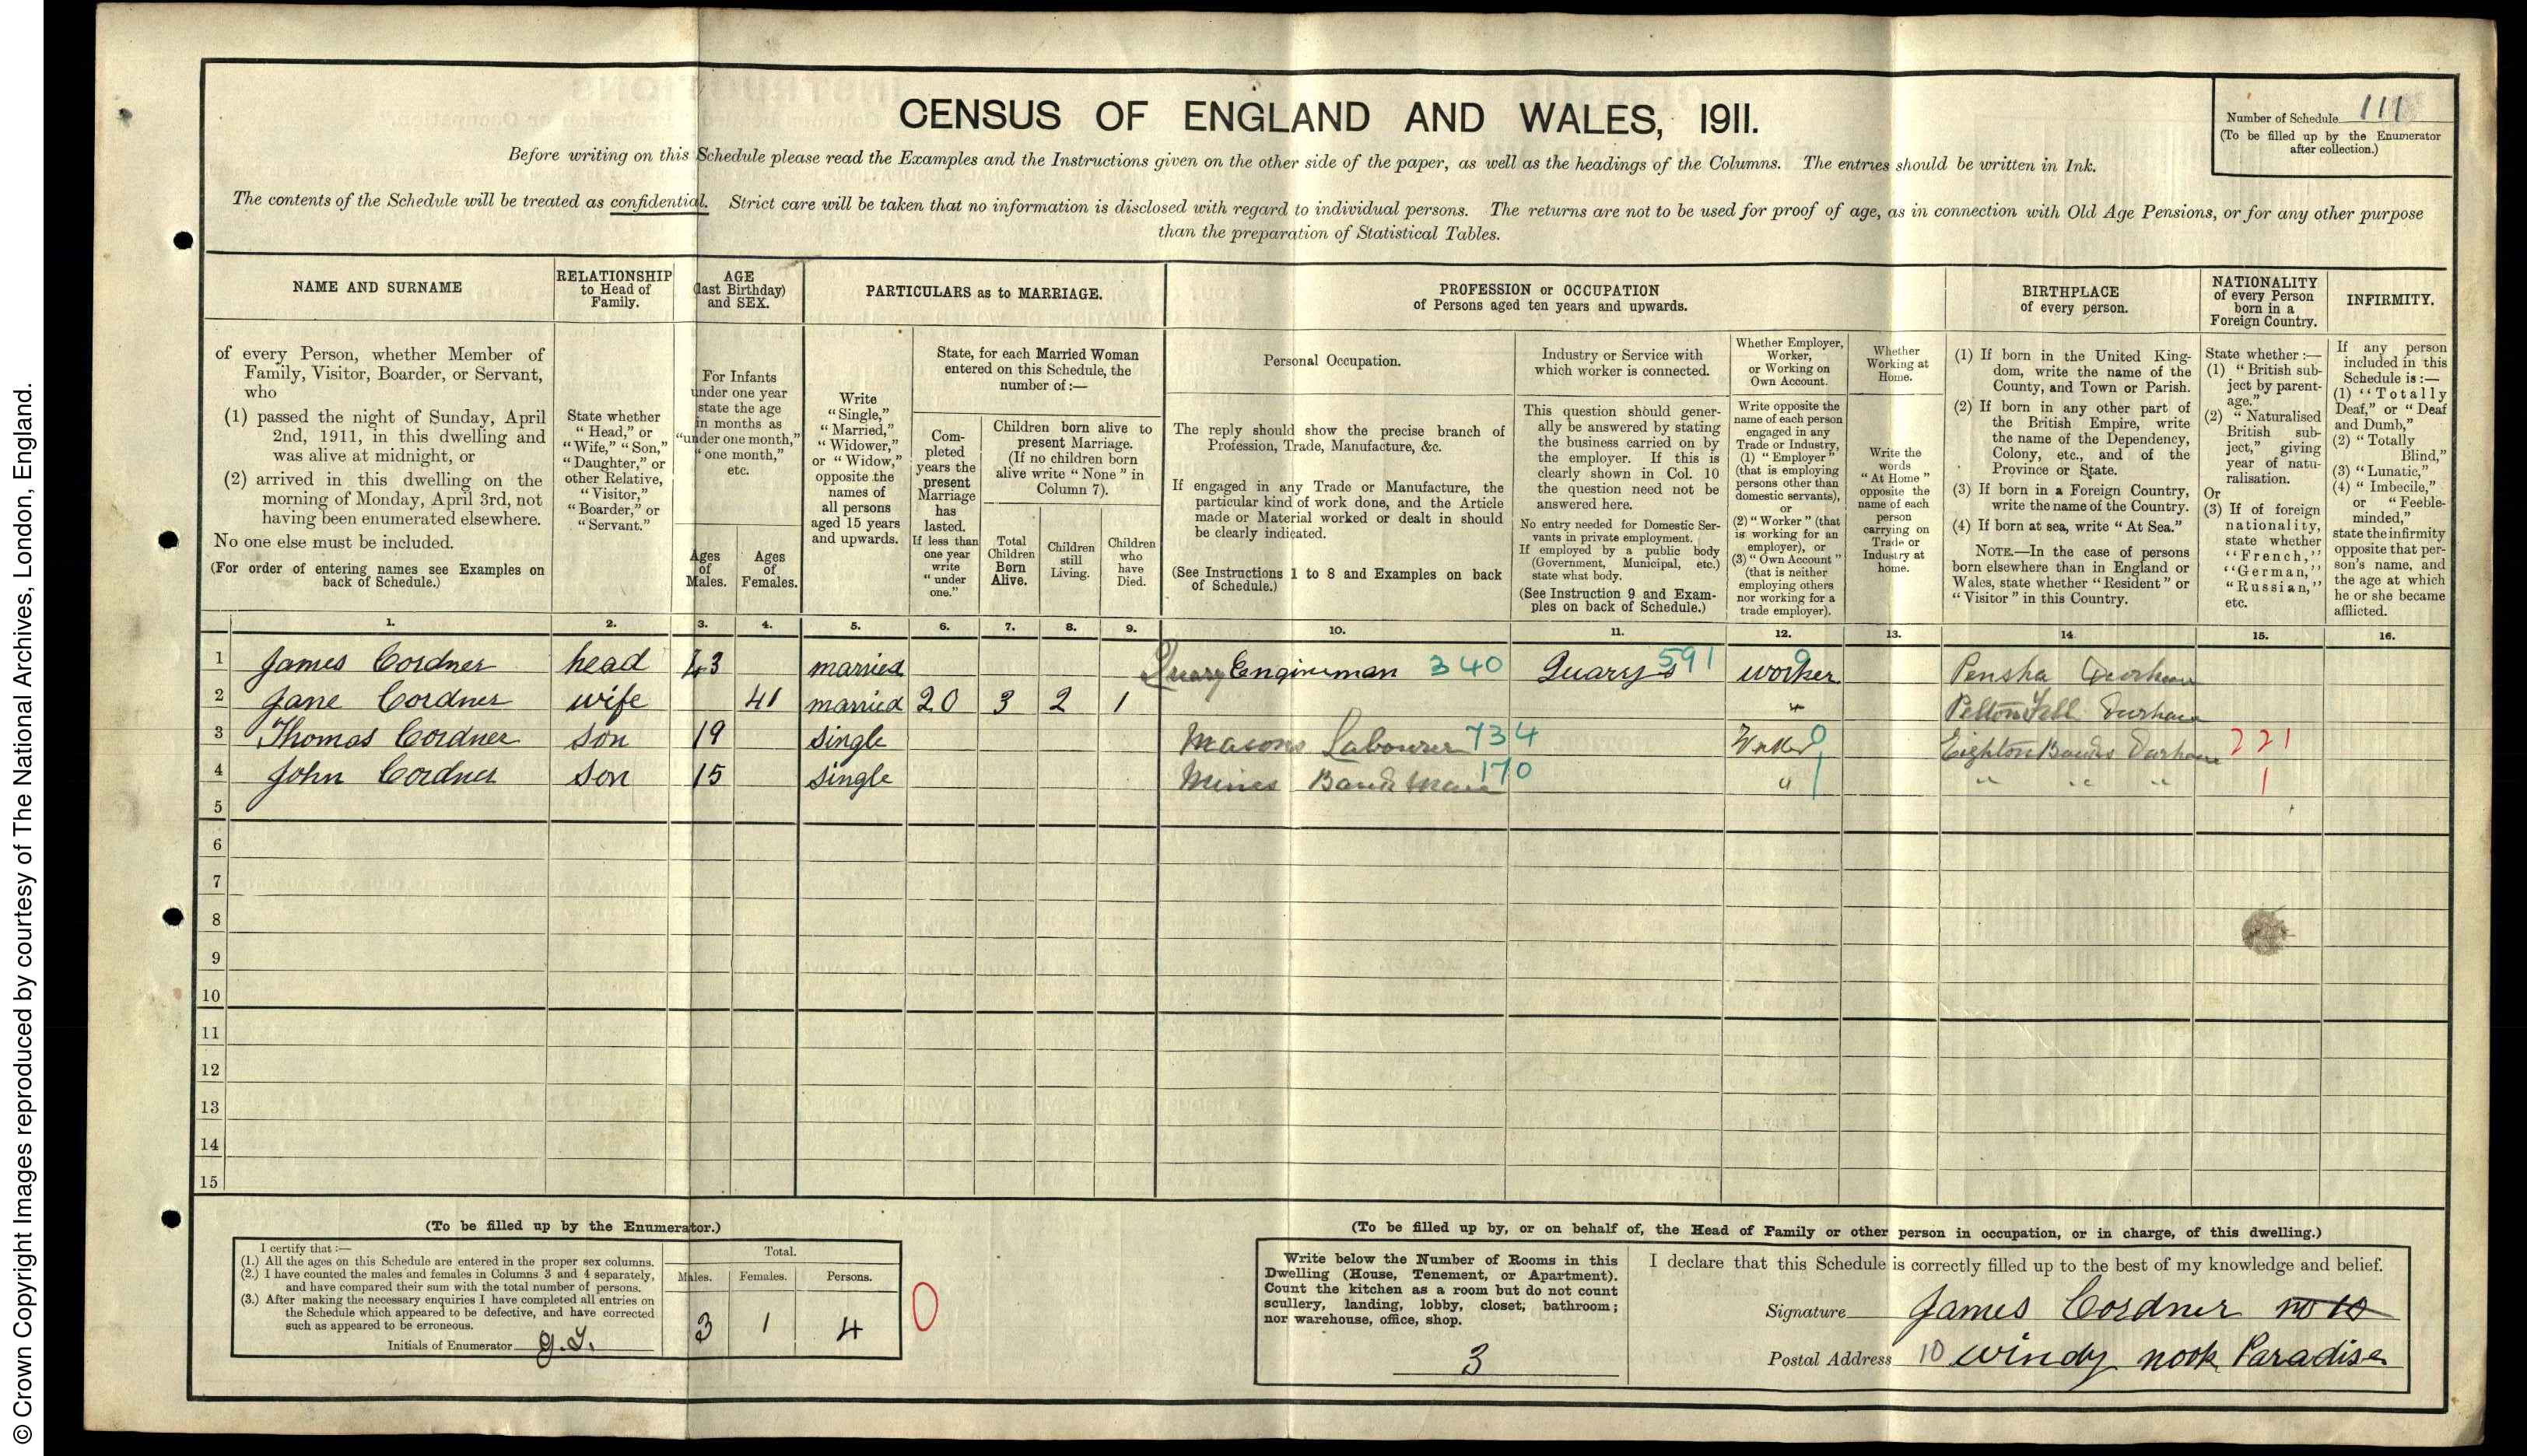 © Crown Copyright Images reproduced by courtesy of The National Archives, London, England.
CENSUS OF ENGLAND AND WALES, 1911.
Number of Schedule 111
(To be filled up by the Enumerator
after collection.)
Before writing on this Schedule please read the Examples and the Instructions given on the other side of the paper, as well as the headings of the Columns. The entries should be written in Ink.
The contents of the Schedule will be treated as confidential. Strict care will be taken that no information is disclosed with regard to individual persons. The returns are not to be used for proof of age, as in connection with Old Age Pensions, or for any other purpose
than the preparation of Statistical Tables.
NAME AND SURNAME
of every Person, whether Member of
Family, Visitor, Boarder, or Servant,
who
(1) passed the night of Sunday, April
2nd, 1911, in this dwelling and
was alive at midnight, or
(2) arrived in this dwelling on the
morning of Monday, April 3rd, not
having been enumerated elsewhere.
No one else must be included.
(For order of entering names see Examples on
back of Schedule.)
RELATIONSHIP
to Head of
Family.
State whether
"Head," or
"Wife," "Son,"
"Daughter," or
other Relative,
"Visitor,"
"Boarder," or
"Servant."
AGE
(last Birthday)
and SEX.
For Infants
under one year
state the age
in months as
"under one month,"
"one month,"
etc.
Ages
of
Males.
Ages
of
Females.
PARTICULARS as to MARRIAGE.
Write
"Single,"
"Married,"
"Widower,"
or "Widow,"
opposite the
names of
all persons
aged 15 years
and upwards.
State, for each Married Woman
entered on this Schedule, the
number of :—
Com-
pleted
years the
present
Marriage
has
lasted.
If less than
one year
write
"under
one."
Children born alive to
present Marriage.
(If no children born
alive write "None" in
Column 7).
Total
Children
Born
Alive.
Children
still
Living.
Children
who
have
Died.
PROFESSION or OCCUPATION
of Persons aged ten years and upwards.
Personal Occupation.
The reply should show the precise branch of
Profession, Trade, Manufacture, &c.
If engaged in any Trade or Manufacture, the
particular kind of work done, and the Article
made or Material worked or dealt in should
be clearly indicated.
(See Instructions 1 to 8 and Examples on back
of Schedule.)
Industry or Service with
which worker is connected.
This question should gener-
ally be answered by stating
the business carried on by
the employer. If this is
clearly shown in Col. 10
the question need not be
answered here.
No entry needed for Domestic Ser-
vants in private employment.
If employed by a public body
(Government, Municipal, etc.)
state what body.
(See Instruction 9 and Exam-
ples on back of Schedule.)
Whether Employer,
Worker,
or Working on
Own Account.
Write opposite the
name of each person
engaged in any
Trade or Industry,
(1) "Employer"
(that is employing
persons other than
domestic servants),
or
(2) "Worker" (that
is working for an
employer), or
(3) "Own Account"
(that is neither
employing others
nor working for a
trade employer).
Whether
Working at
Home.
Write the
words
"At Home"
opposite the
name of each
person
carrying on
Trade or
Industry at
home.
BIRTHPLACE
of every person.
(1) If born in the United King-
dom, write the name of the
County, and Town or Parish.
(2) If born in any other part of
the British Empire, write
the name of the Dependency,
Colony, etc., and of the
Province or State.
(3) If born in a Foreign Country,
write the name of the Country.
(4) If born at sea, write "At Sea."
NOTE.—In the case of persons
born elsewhere than in England or
Wales, state whether "Resident" or
"Visitor" in this Country.
NATIONALITY
of every Person
born in a
Foreign Country.
State whether :—
(1) "British sub-
ject by parent-
age."
(2) "Naturalised
British sub-
ject," giving
year of natu-
ralisation.
Or
(3) If of foreign
nationality,
state whether
"French,"
"German,"
"Russian,"
etc.
INFIRMITY.
If any person
included in this
Schedule is :—
(1) "Totally
Deaf," or "Deaf
and Dumb,"
(2) "Totally
Blind,"
(3) "Lunatic,"
(4) "Imbecile,"
or "Feeble-
minded,"
state the infirmity
opposite that per-
son's name, and
the age at which
he or she became
afflicted.
1. 2. 3. 4. 5. 6. 7. 8. 9. 10. 11. 12. 13. 14 15. 16.
1 James Cordner head 43 married Quary Engineman 340 Quary s 591 worker Pensha Durham
2 Jane Cordner wife 41 married 20 3 2 1 " Pelton Fell Durham
3 Thomas Cordner son 19 single Masons Labourer 734 Worker Eighton Banks Durham 221
4 John Cordner son 15 single Mines Bank Man 170 " " " " 1
5
6
7
8
9
10
11
12
13
14
15
(To be filled up by the Enumerator.)
I certify that :—
(1.) All the ages on this Schedule are entered in the proper sex columns.
(2.) I have counted the males and females in Columns 3 and 4 separately,
and have compared their sum with the total number of persons.
(3.) After making the necessary enquiries I have completed all entries on
the Schedule which appeared to be defective, and have corrected
such as appeared to be erroneous.
Initials of Enumerator
Total.
Males. Females. Persons.
3 1 4
0
(To be filled up by, or on behalf of, the Head of Family or other person in occupation, or in charge, of this dwelling.)
Write below the Number of Rooms in this
Dwelling (House, Tenement, or Apartment).
Count the kitchen as a room but do not count
scullery, landing, lobby, closet, bathroom;
nor warehouse, office, shop.
3
I declare that this Schedule is correctly filled up to the best of my knowledge and belief.
Signature James Cordner no 10
Postal Address 10 windy nook Paradise